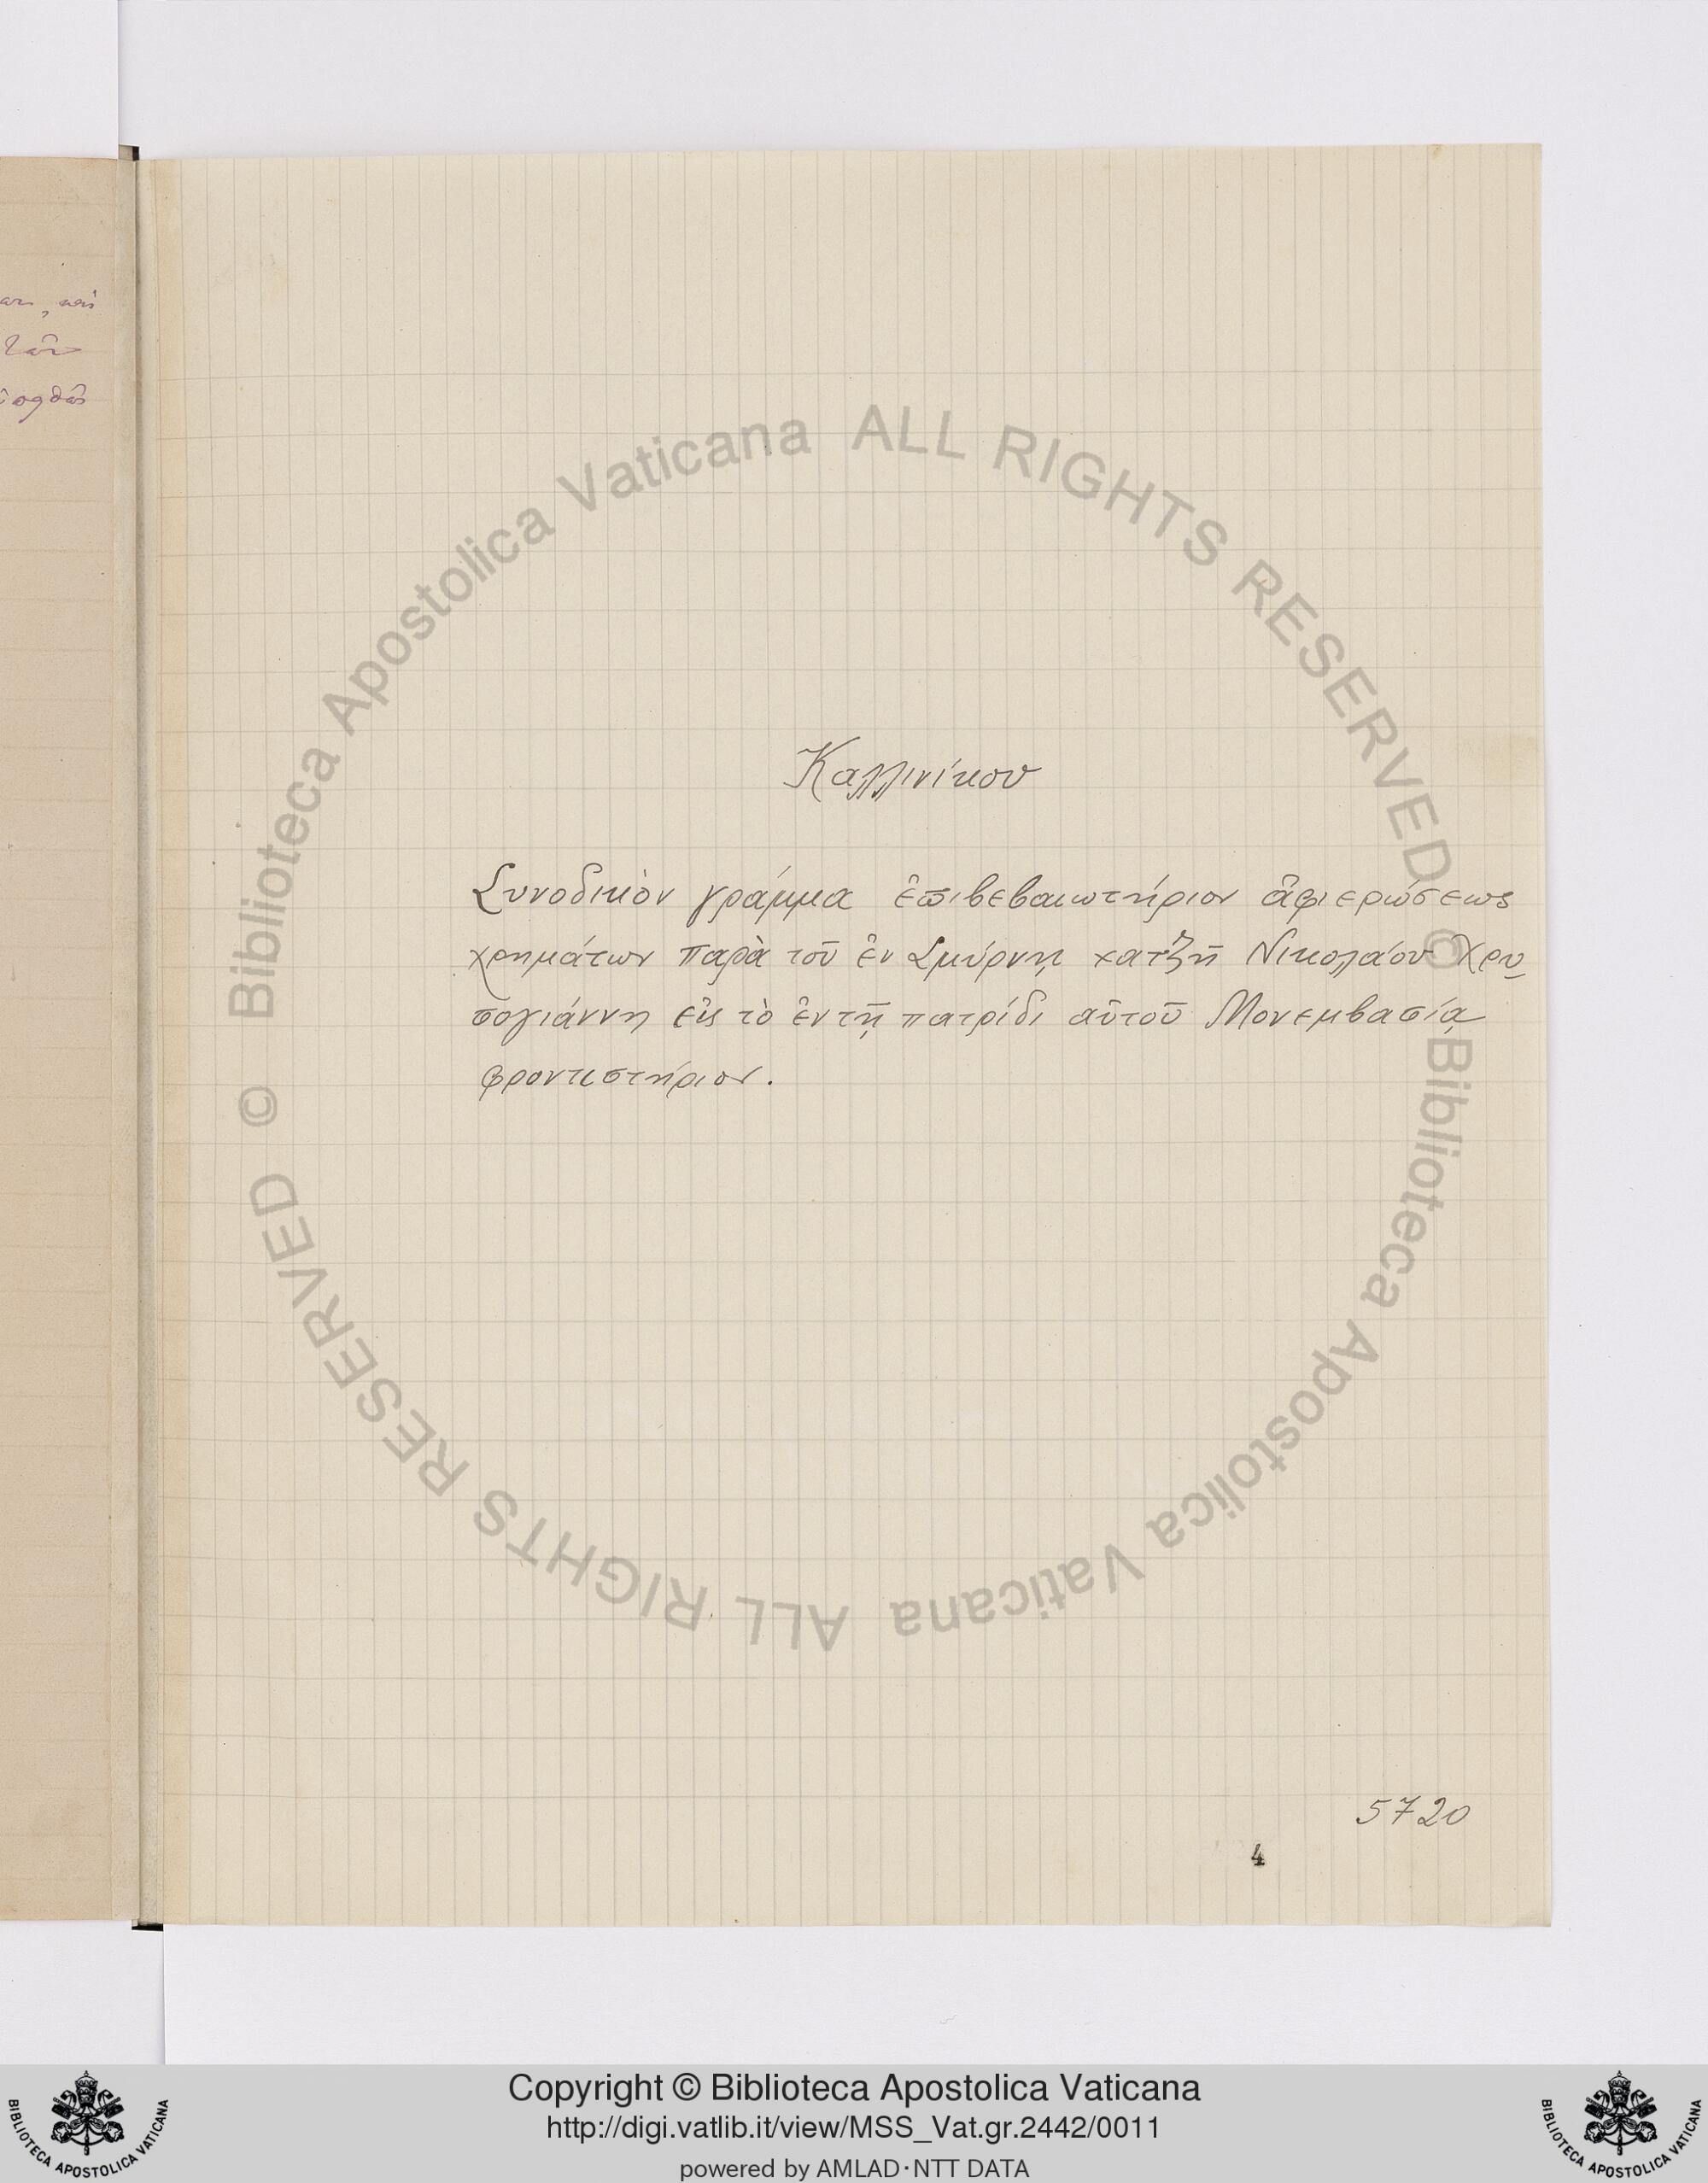 Καλλινίκου
Συνοδικὸν γράμμα ἐπιβεβαιωτήριον ἀφιερώσεως
χρημάτων παρὰ τοῦ ἐν Σμύρνῃ χατζῆ Νικολάου Χρυ-
σογιάννη εἰς τὸ ἐν τῇ πατρίδι αὐτοῦ Μονεμβασίᾳ
φροντιστήριον.
5720
4
© Biblioteca Apostolica Vaticana ALL RIGHTS RESERVED
© Biblioteca Apostolica Vaticana ALL RIGHTS RESERVED
Copyright © Biblioteca Apostolica Vaticana
http://digi.vatlib.it/view/MSS_Vat.gr.2442/0011
powered by AMLAD·NTT DATA
BIBLIOTECA APOSTOLICA VATICANA
BIBLIOTECA APOSTOLICA VATICANA